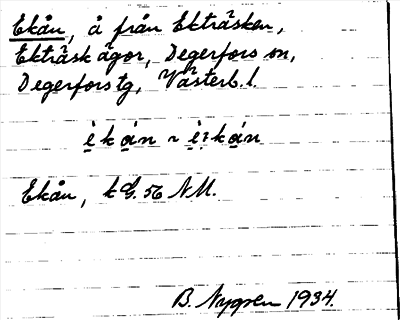 Ekån, å från Ekträsken,
Ekträsk ägor, Degerfors sn,
Degerfors tg, Västerb. l.
Ekån, k G. 56 NM.
B. Nygren 1934.